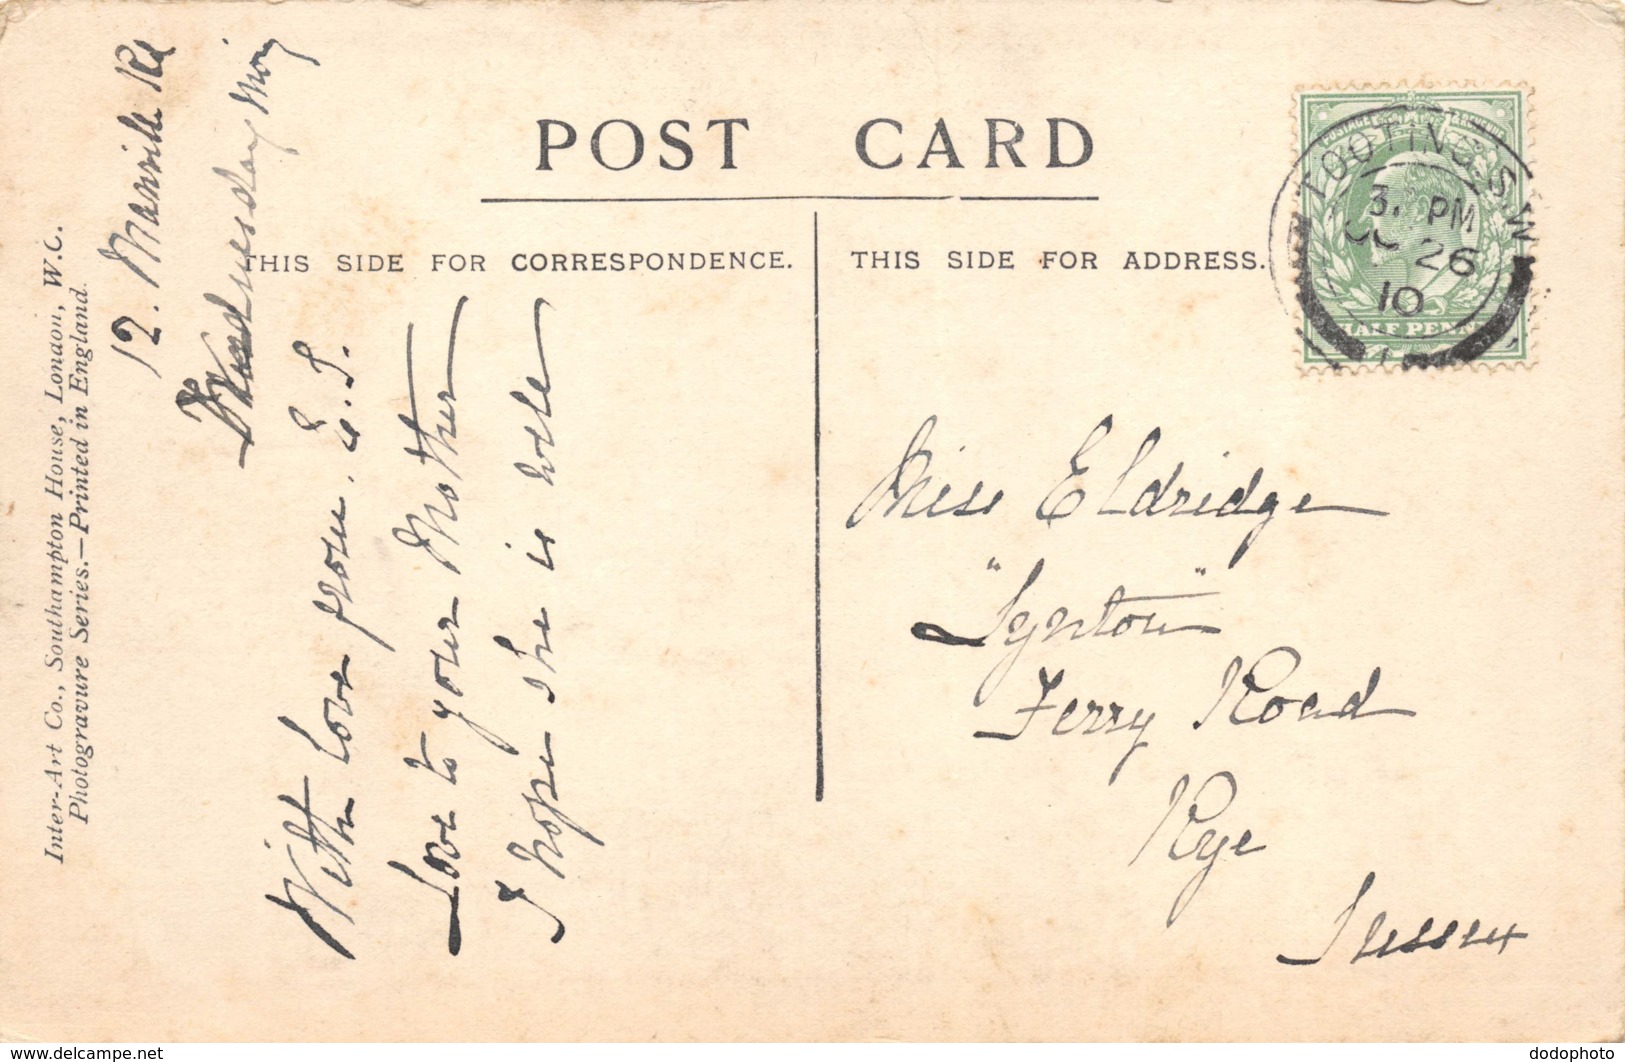 POST CARD
THIS SIDE FOR CORRESPONDENCE.
THIS SIDE FOR ADDRESS.
Inter-Art Co., Southampton House, London, W.C.
Photogravure Series.—Printed in England.
12. Manville Rd
Wednesday Morg
With love from. E.S.
Love to your Mother
I hope she is well
Miss Eldridge
"Lynton"
Ferry Road
Rye
Sussex
TOOTING. S.W.
3. PM
OC 26
10
HALF PENNY
www.delcampe.net
dodophoto